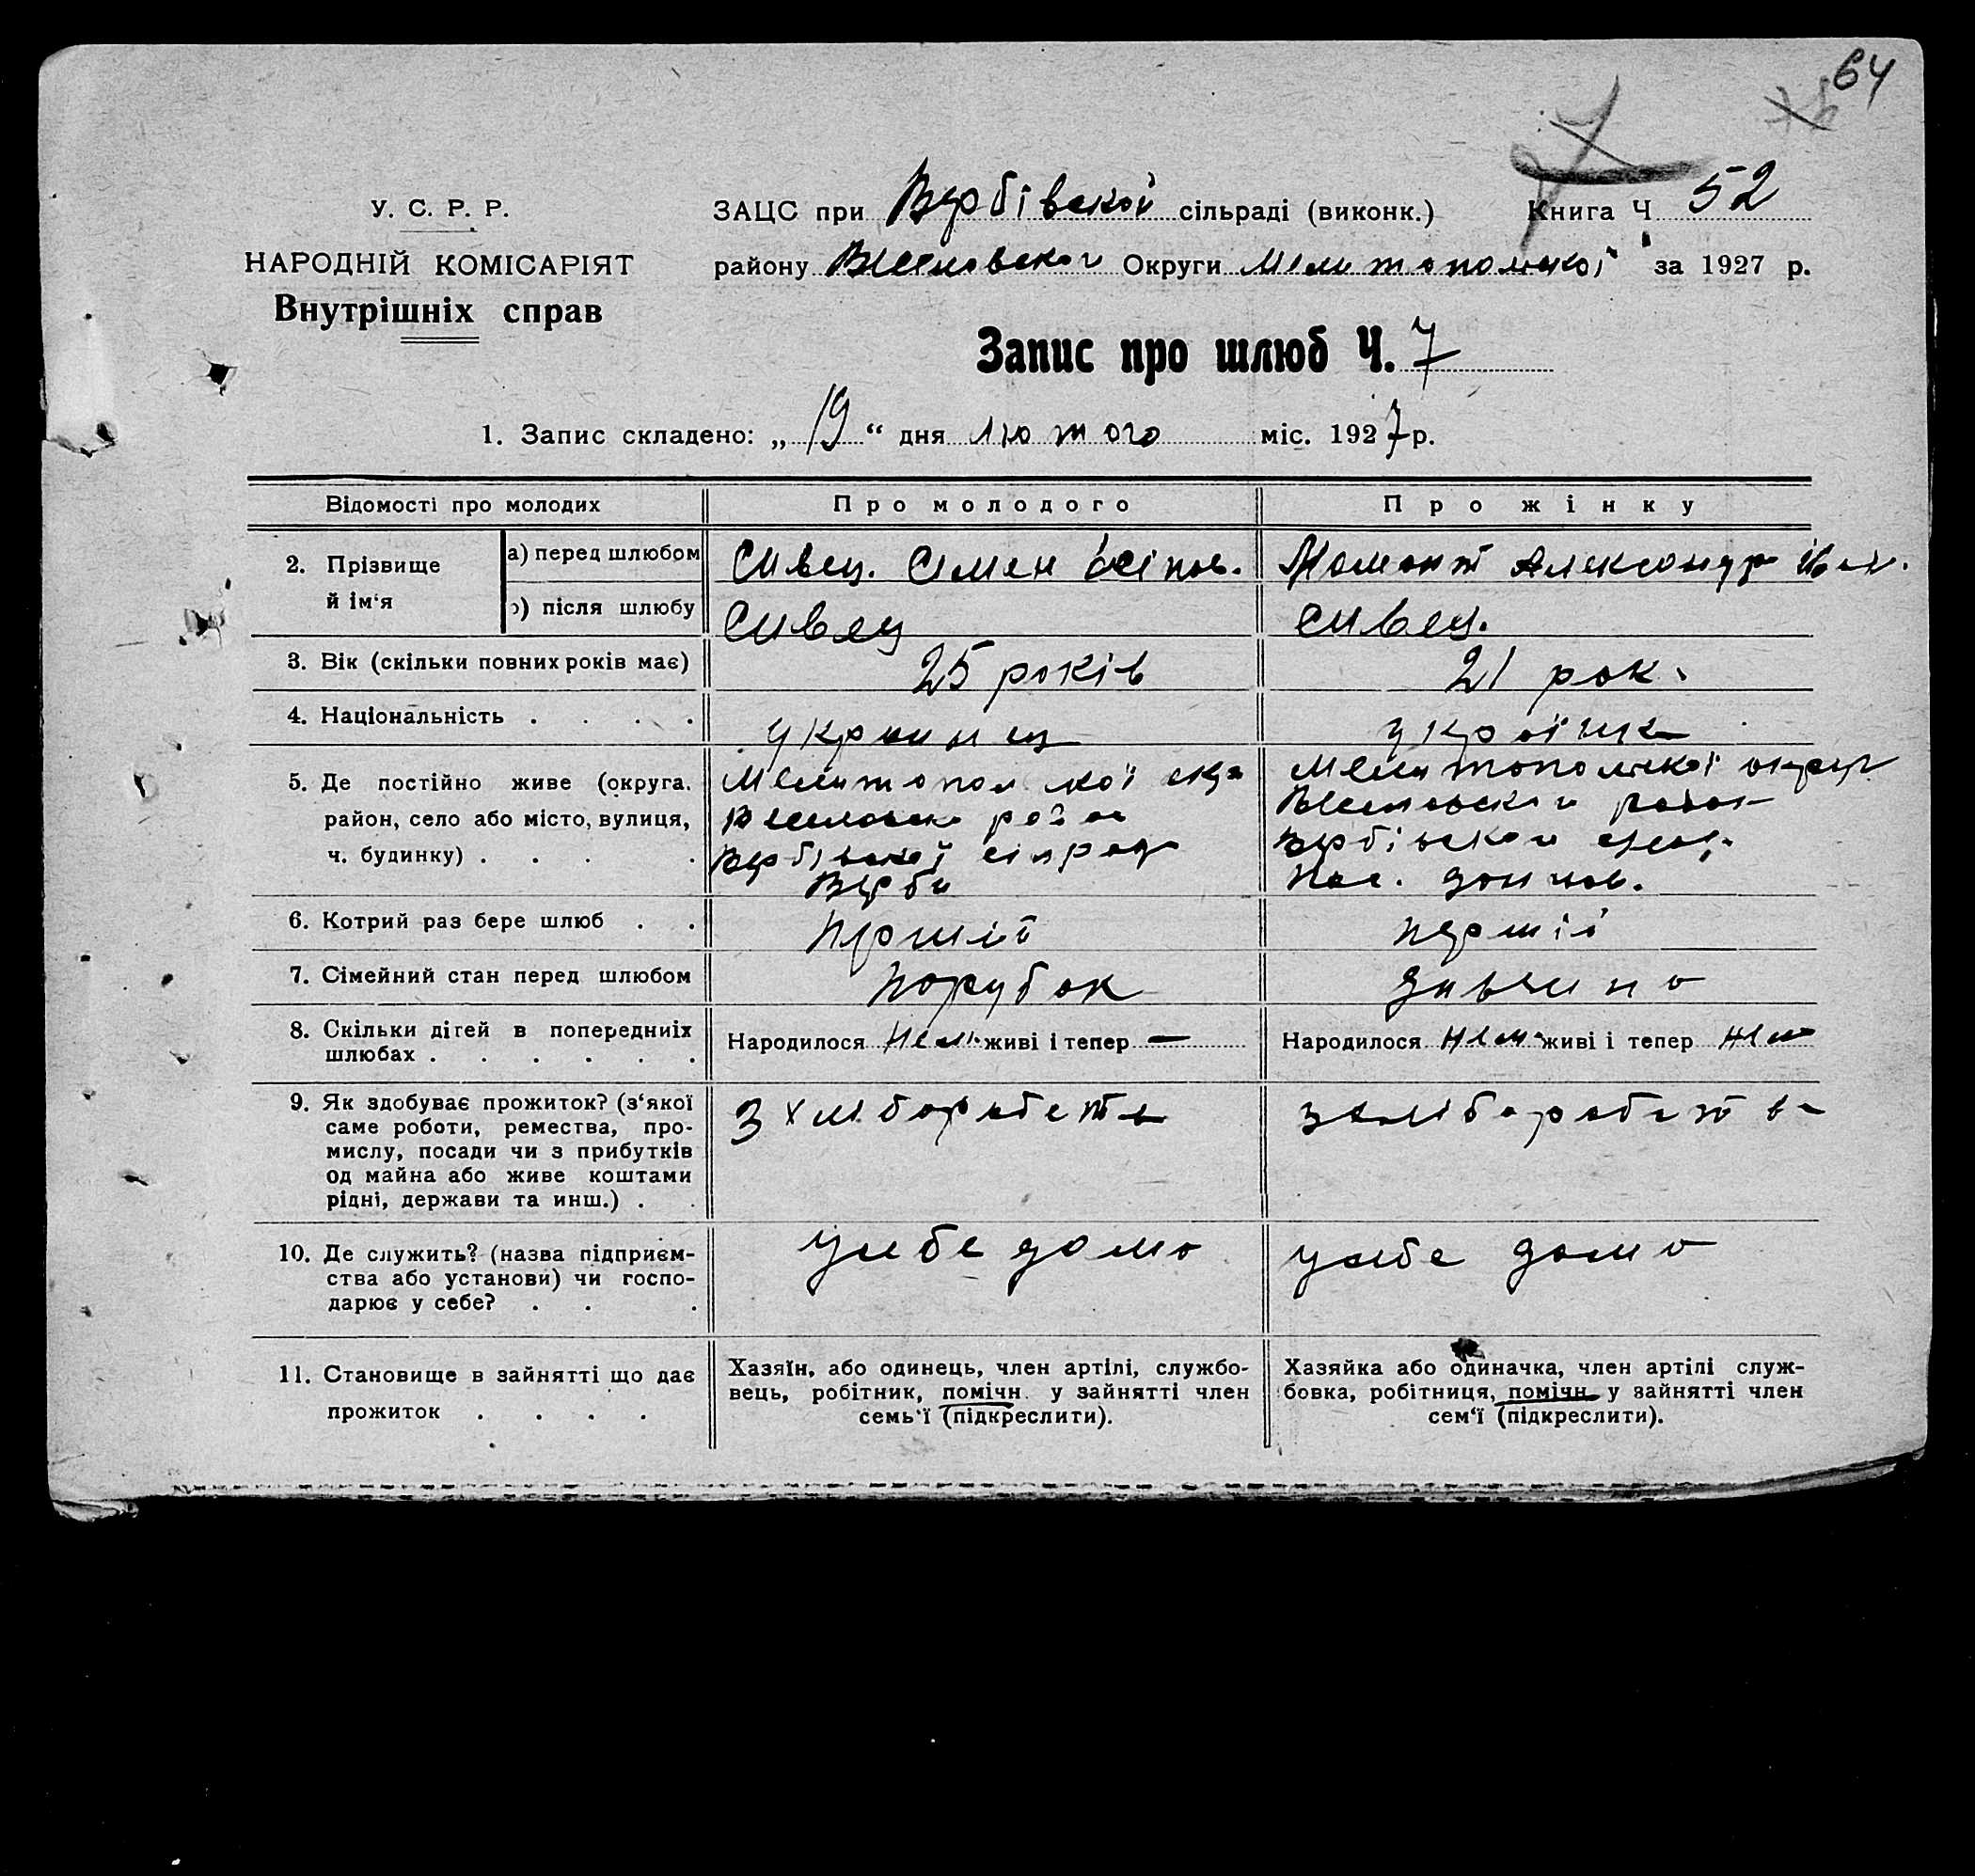 64
У. С. Р. Р.
НАРОДНІЙ КОМІСАРІЯТ
Внутрішніх справ
ЗАЦС при Вербівской сільраді (виконк.) Книга Ч 52
району Веселовского Округи Мелитопольскої за 1927 р.
Запис про шлюб Ч. 7
1. Запис складено: „ 19 “ дня лютого міс. 1927 р.
Відомості про молодих Про молодого Про жінку
2. Прізвище й ім‘я а) перед шлюбом Сивец. Семен Осіпов. Мамонт Александра
б) після шлюбу Сивец Сивец.
3. Вік (скільки повних років має) 25 років 21 рок.
4. Національність . . . . украинец українка
5. Де постійно живе (округа, Мелитопольскої Мелитопольскої округи
район, село або місто, вулиця, Веселовско район Веселовского район
ч. будинку) . . . . Вербівской сілради Вербівской
Верби
6. Котрий раз бере шлюб . . перший перший
7. Сімейний стан перед шлюбом порубок дивчина
8. Скільки дітей в попередниіх Народилося Нема живі і тепер — Народилося Нема живі і тепер нема
шлюбах . . . . . .
9. Як здобуває прожиток? (з‘якої З хлиборобства з хлиборобства
саме роботи, ремества, про-
мислу, посади чи з прибутків
од майна або живе коштами
рідні, держави та инш.) . .
10. Де служить? (назва підприєм- у себе дома у себе дома
ства або установи) чи госпо-
дарює у себе? . . .
11. Становище в зайнятті що дає Хазяїн, або одинець, член артілі, службо- Хазяйка або одиначка, член артілі служ-
прожиток . . . . вець, робітник, помічн. у зайнятті член бовка, робітниця, помічн. у зайнятті член
семь‘ї (підкреслити). сем‘ї (підкреслити).